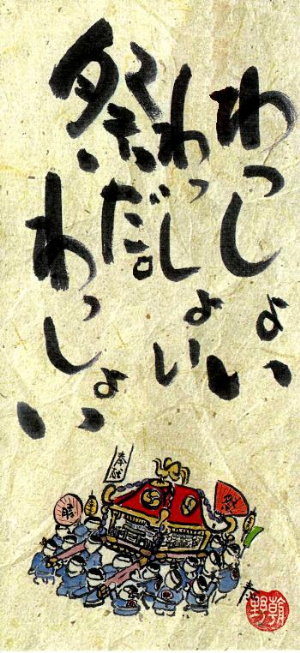 わっしょい
わっしょい
祭だ。
わっしょい
奉納
祭